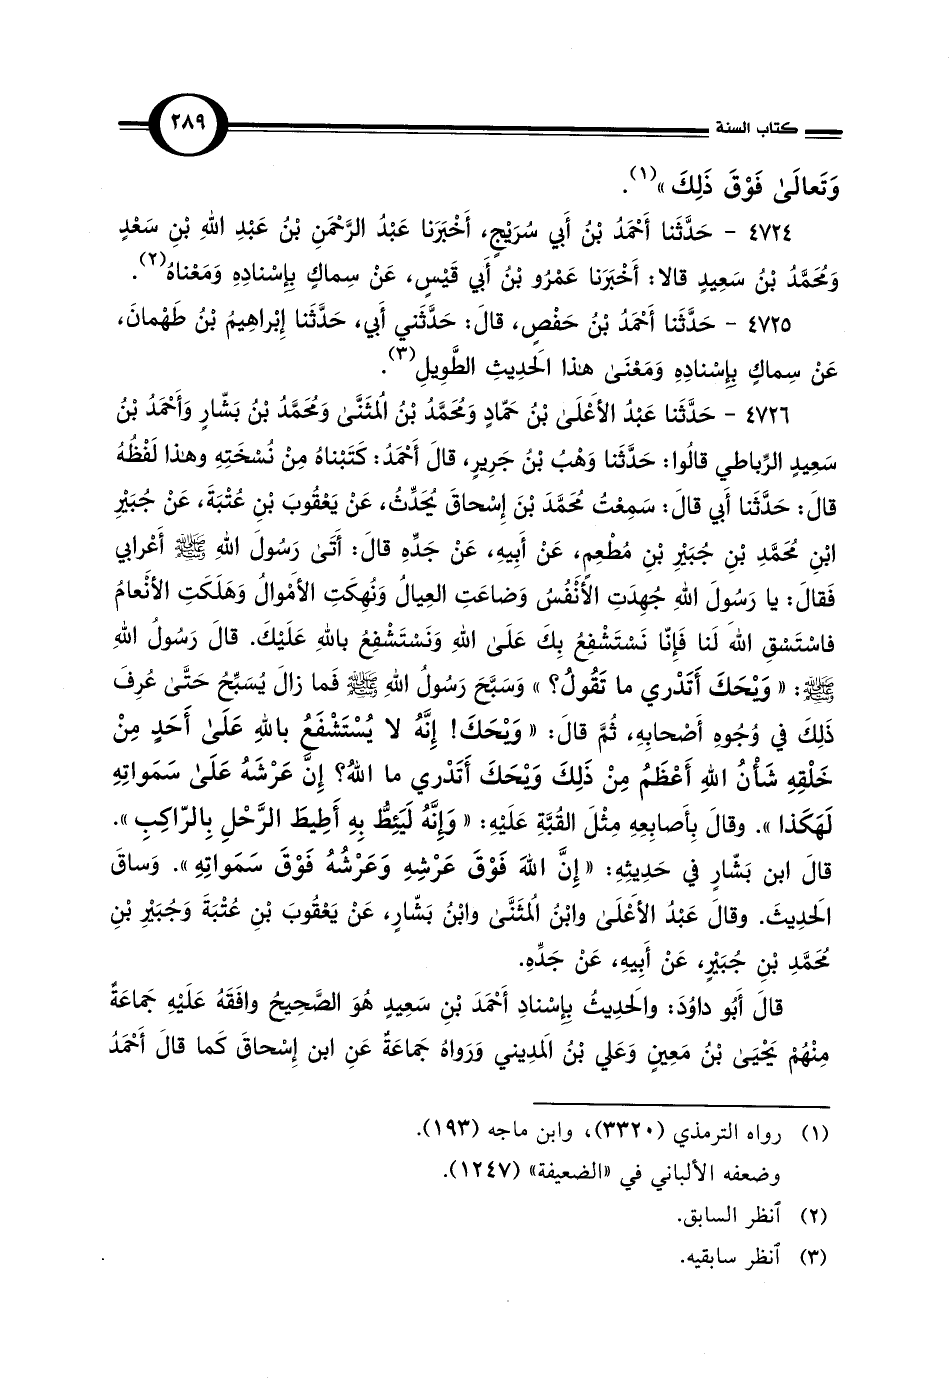 كتاب السنة ٢٨٩
وَتَعالَىٰ فَوْقَ ذَلِكَ »(١).
٤٧٢٤ - حَدَّثَنا أَحْمَدُ بْنُ أَبي سُرَيْجٍ، أَخْبَرَنا عَبْدُ الرَّحْمَنِ بْنُ عَبْدِ اللهِ بْنِ سَعْدٍ
وَمُحَمَّدُ بْنُ سَعِيدٍ قالا: أَخْبَرَنا عَمْرُو بْنُ أَبي قَيْسٍ، عَنْ سِماكٍ بِإِسْنادِهِ وَمَعْناهُ(٢).
٤٧٢٥ - حَدَّثَنا أَحْمَدُ بْنُ حَفْصٍ، قالَ: حَدَّثَني أَبي، حَدَّثَنا إِبْراهِيمُ بْنُ طَهْمانَ،
عَنْ سِماكٍ بِإِسْنادِهِ وَمَعْنَىٰ هذا الحَدِيثِ الطَّوِيلِ(٣).
٤٧٢٦ - حَدَّثَنا عَبْدُ الأَعْلَىٰ بْنُ حَمّادٍ وَمُحَمَّدُ بْنُ المُثَنَّىٰ وَمُحَمَّدُ بْنُ بَشّارٍ وَأَحْمَدُ بْنُ
سَعِيدٍ الرِّباطي قالُوا: حَدَّثَنا وَهْبُ بْنُ جَرِيرٍ، قالَ أَحْمَدُ: كَتَبْناهُ مِنْ نُسْخَتِهِ وهذا لَفْظُهُ
قالَ: حَدَّثَنا أَبي قالَ: سَمِعْتُ مُحَمَّدَ بْنَ إِسْحاقَ يُحَدِّثُ، عَنْ يَعْقُوبَ بْنِ عُتْبَةَ، عَنْ جُبَيْرِ
ابْنِ مُحَمَّدِ بْنِ جُبَيْرِ بْنِ مُطْعِمٍ، عَنْ أَبِيهِ، عَنْ جَدِّهِ قالَ: أَتَىٰ رَسُولَ اللهِ ﷺ أَعْرابي
فَقالَ: يا رَسُولَ اللهِ جُهِدَتِ الأَنْفُسُ وَضاعَتِ العِيالُ وَنُهِكَتِ الأَمْوالُ وَهَلَكَتِ الأَنْعامُ
فاسْتَسْقِ اللهَ لَنا فَإِنّا نَسْتَشْفِعُ بِكَ عَلَىٰ اللهِ وَنَسْتَشْفِعُ باللهِ عَلَيْكَ. قالَ رَسُولُ اللهِ
ﷺ: « وَيْحَكَ أَتَدْري ما تَقُولُ؟ » وَسَبَّحَ رَسُولُ اللهِ ﷺ فَما زالَ يُسَبِّحُ حَتَّىٰ عُرِفَ
ذَلِكَ في وُجُوهِ أَصْحابِهِ، ثُمَّ قالَ: « وَيْحَكَ! إِنَّهُ لا يُسْتَشْفَعُ باللهِ عَلَىٰ أَحَدٍ مِنْ
خَلْقِهِ شَأْنُ اللهِ أَعْظَمُ مِنْ ذَلِكَ وَيْحَكَ أَتَدْري ما اللهُ؟ إِنَّ عَرْشَهُ عَلَىٰ سَمَواتِهِ
لَهَكَذا ». وقالَ بِأَصابِعِهِ مِثْلَ القُبَّةِ عَلَيْهِ: « وَإِنَّهُ لَيَئِطُّ بِهِ أَطِيطَ الرَّحْلِ بِالرّاكِبِ ».
قالَ ابن بَشّارٍ في حَدِيثِهِ: « إِنَّ اللهَ فَوْقَ عَرْشِهِ وَعَرْشُهُ فَوْقَ سَمَواتِهِ ». وَساقَ
الحَدِيثَ. وقالَ عَبْدُ الأَعْلَىٰ وابْنُ المُثَنَّىٰ وابْنُ بَشّارٍ، عَنْ يَعْقُوبَ بْنِ عُتْبَةَ وَجُبَيْرِ بْنِ
مُحَمَّدِ بْنِ جُبَيْرٍ، عَنْ أَبِيهِ، عَنْ جَدِّهِ.
قالَ أَبُو داوُدَ: والحَدِيثُ بِإِسْنادِ أَحْمَدَ بْنِ سَعِيدٍ هُوَ الصَّحِيحُ وافَقَهُ عَلَيْهِ جَماعَةٌ
مِنْهُمْ يَحْيَىٰ بْنُ مَعِينٍ وَعَلي بْنُ المَدِيني وَرَواهُ جَماعَةٌ عَنِ ابن إِسْحاقَ كَما قالَ أَحْمَدُ
(١) رواه الترمذي (٣٣٢٠)، وابن ماجه (١٩٣).
وضعفه الألباني في «الضعيفة» (١٢٤٧).
(٢) ٱنظر السابق.
(٣) ٱنظر سابقيه.